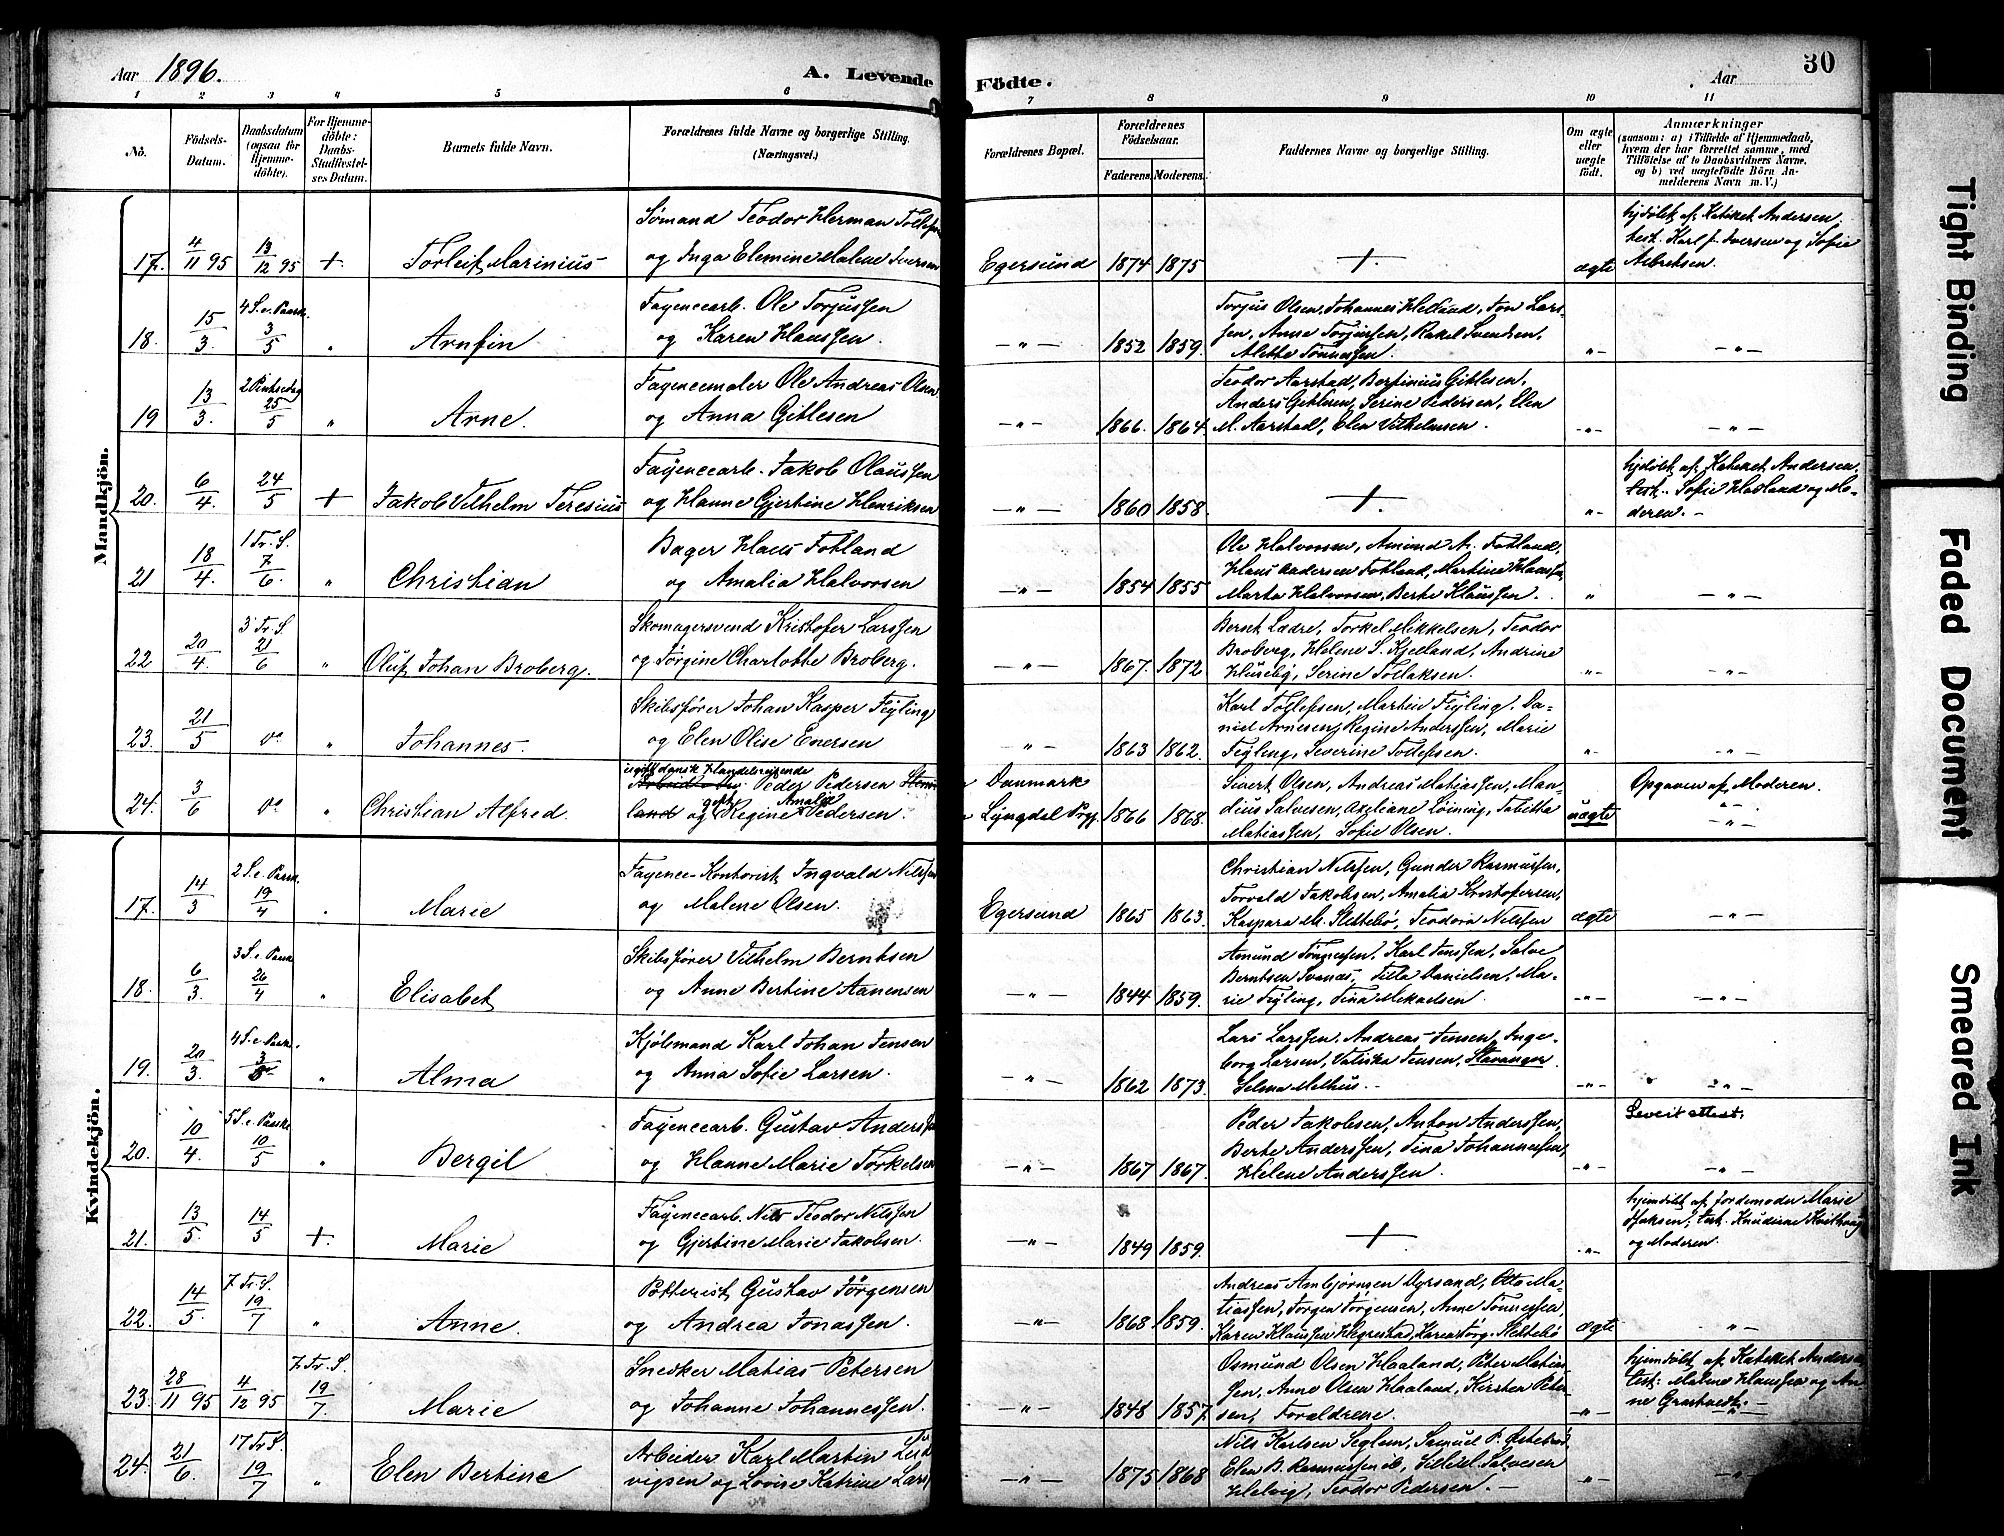 Aar 1896.
A. Levende Födte.
Aar
30
1 2 3 4 5 6 7 8 9 10 11
No.
Födsels-Datum.
Daabsdatum (ogsaa for Hjemme-döbte).
For Hjemme-döbte: Daabs-Stadfæstel-ses Datum.
Barnets fulde Navn.
Forældrenes fulde Navne og borgerlige Stilling. (Næringsvei.)
Forældrenes Bopæl.
Forældrenes Födselsaar.
Faderens. Moderens.
Faddernes Navne og borgerlige Stilling.
Om ægte eller uægte födt.
Anmærkninger
(saasom: a) i Tilfælde af Hjemmedaab, hvem der har forrettet samme, med Tilföielse af to Daabsvidners Navne. og b) ved uægtefödte Börn An-melderens Navn m. V.)
Mandkjön.
17. 4/11 95 13/12 95 + Torleif Marinius
Sømand Teodor Herman Tollefsen
og Inga Elemine Malene Iversen
Egersund 1874 1875 + ægte
hjdöbt af Kateket Andersen.
test. Karl J. Iversen og Sofie
Albretsen.
18. 15/3. 4 S. e. Paask. 3/5 " Arnfin
Fayencearb. Ole Torjussen
og Karen Hanssen.
—"— 1852 1859.
Torjus Olsen, Johannes Hetland, Jon Lars-
sen, Anne Torjussen, Rakel Svendsen,
Alette Tönnessen.
"— —"—
19 13/3. 2 Pintsedag 25/5 " Arne.
Fayencemaler Ole Andreas Olsen
og Anna Gitlesen
—"— 1866. 1864.
Teodor Aarstad, Bertinius Gitlesen,
Anders Gitlesen, Serine Pedersen, Elen
M. Aarstad, Elen Vilhelmsen.
-"- —"—
20. 6/4. 24/5 + Jakob Vilhelm Teresius
Fayencearb. Jakob Olaussen
og Hanne Gjertine Henriksen
—"— 1860 1858. + "-
hjdöbt af Kateket Andersen.
test. Sofie Haaland og Mo-
deren.-
21 18/4. 1 Tr. S. 7/6. " Christian
Bager Hans Fotland
og Amalia Halvorsen
—"— 1854 1855
Ole Halvorsen, Amund A. Fotland,
Hans Andersen Fotland, Martine Hanssen,
Marta Halvorsen, Berte Klaussen.
" —"—
22 20/4. 3 Tr. S. 21/6 " Oluf Johan Broberg.
Skomagersvend Kristofer Larssen
og Jørgine Charlotte Broberg.
—"— 1867. 1872
Bernt Lædre, Torkel Mikkelsen, Teodor
Broberg, Helene S. Kjelland, Andrine
Huseby, Serine Tollaksen.
"- -"-
23. 21/5 do " Johannes.
Skibsfører Johan Kasper Feyling
og Elen Olise Enersen
"- 1863 1862.
Karl Tollefsen, Martin Feyling, Da-
niel Arnesen, Regine Anderssen, Marie
Feyling, Severine Tollefsen.
"- -"-
24. 3/6 do " Christian Alfred.
ugift dansk Handelsreisende
Peder Pedersen
land og gift Regine Amalie Pedersen.
Danmark
Lyngdal Prgj. 1866 1868.
Sivert Olsen, Andreas Matiassen, Man-
dius Salvesen, Axeliane Löining, Tabitta
Matiassen, Sofie Olsen.
uægte
Opgaven af Moderen.
-"-
-"-
Kvindekjön.
17. 14/3 2 S. e. Paask. 19/4 . Marie
Fayence-Kontorist Ingvald Nilssen
og Malene Olsen.
Egersund 1865 1863.
Christian Nilssen, Gunder Rasmussen,
Torvald Jakobsen, Amalia Kristofersen,
Kaspara M. Slettebö, Teodora Nilssen
ægte -"-
18. 6/3. 3 S. e. Paask 26/4 " Elisabet
Skibsfører Vilhelm Berntsen
og Anne Bertine Aanensen
—"— 1844 1859.
Amund Tönnessen, Karl Jenssen, Salve
Berntsen Svanæs, Tilla Danielsen, Ma-
rie Feyling, Tina Mikaelsen
-"- —"—
19. 20/3. 4 S. e. Paask. 3/5 " Alma
Kjölmand Karl Johan Jensen
og Anna Sofie Larsen.
—"— 1862 1873.
Lars Larssen, Andreas Jensen, Inge-
borg Larsen, Valiska Jensen, Stavanger.
Selma Melhus.-
-"- "-
20. 10/4. 5 S. e. Paaske 10/5 " Bergit
Fayencearb. Gustav Anderssen
og Hanne Marie Torkelsen
—"— 1867 1867.
Peder Jakobsen, Anton Anderssen,
Berte Anderssen, Tina Johannessen,
Helene Anderssen.
-"-
Leveit attest.
-"-
21. 13/5. 14/5 +. Marie
Fayencearb. Nils Teodor Nilssen
og Gjertine Marie Jakobsen.
—"— 1849 1859. + -"-
hjemdöbt af Jordemoder Marie
Isaksen, test. Knudine
og Moderen.
22. 14/5. 7. Tr. S. 19/7 " Anne.
Potterist Gustav Jörgensen
og Andrea Jonassen.
—"— 1868 1859.
Andreas Ambjörnsen Myrsand, Otto Ma-
tiassen, Jörgen Jörgensen, Anne Tönnessen
Karen Klaussen Hegrestad, Karen Jörg. Slettebö
ægte "-
23. 28/11 95 4/12 95 7 Tr. S. 19/7. Marie
Snedker Matias Petersen
og Johanne Johannessen.
—"— 1848 1857.
Osmund Olsen Haaland, Peter Matias-
sen, Anne Olsen Haaland, Kirsten Peter-
sen, Foraldrene.
-"-
hjemdöbt af Kateket Andersen
test: Malene Hanssen og An-
ne
24. 21/6. 17 Tr S. 19/7 " Elen Bertine
Arbeider Karl Martin Lud-
vigsen og Lovise Katrine Lars
—"— 1875 1868
Nils Karlsen Seglem, Samuel P. Østebrö
Elen B. Rasmussen do, Sillisel. Salvesen
Helvig, Teodor Pedersen.-
-"- -"-
Tight Binding
Faded Document
Smeared Ink